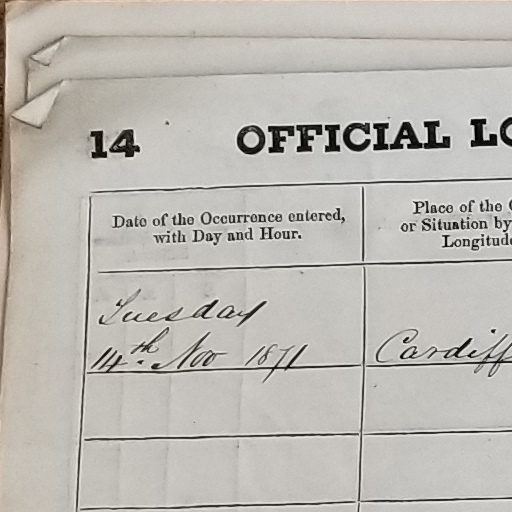 14 OFFICIAL LO
Date of the Occurrence entered,
with Day and Hour.
Place of the
or Situation by
Longitude
Tuesday
14th Nov 1871
Cardiff